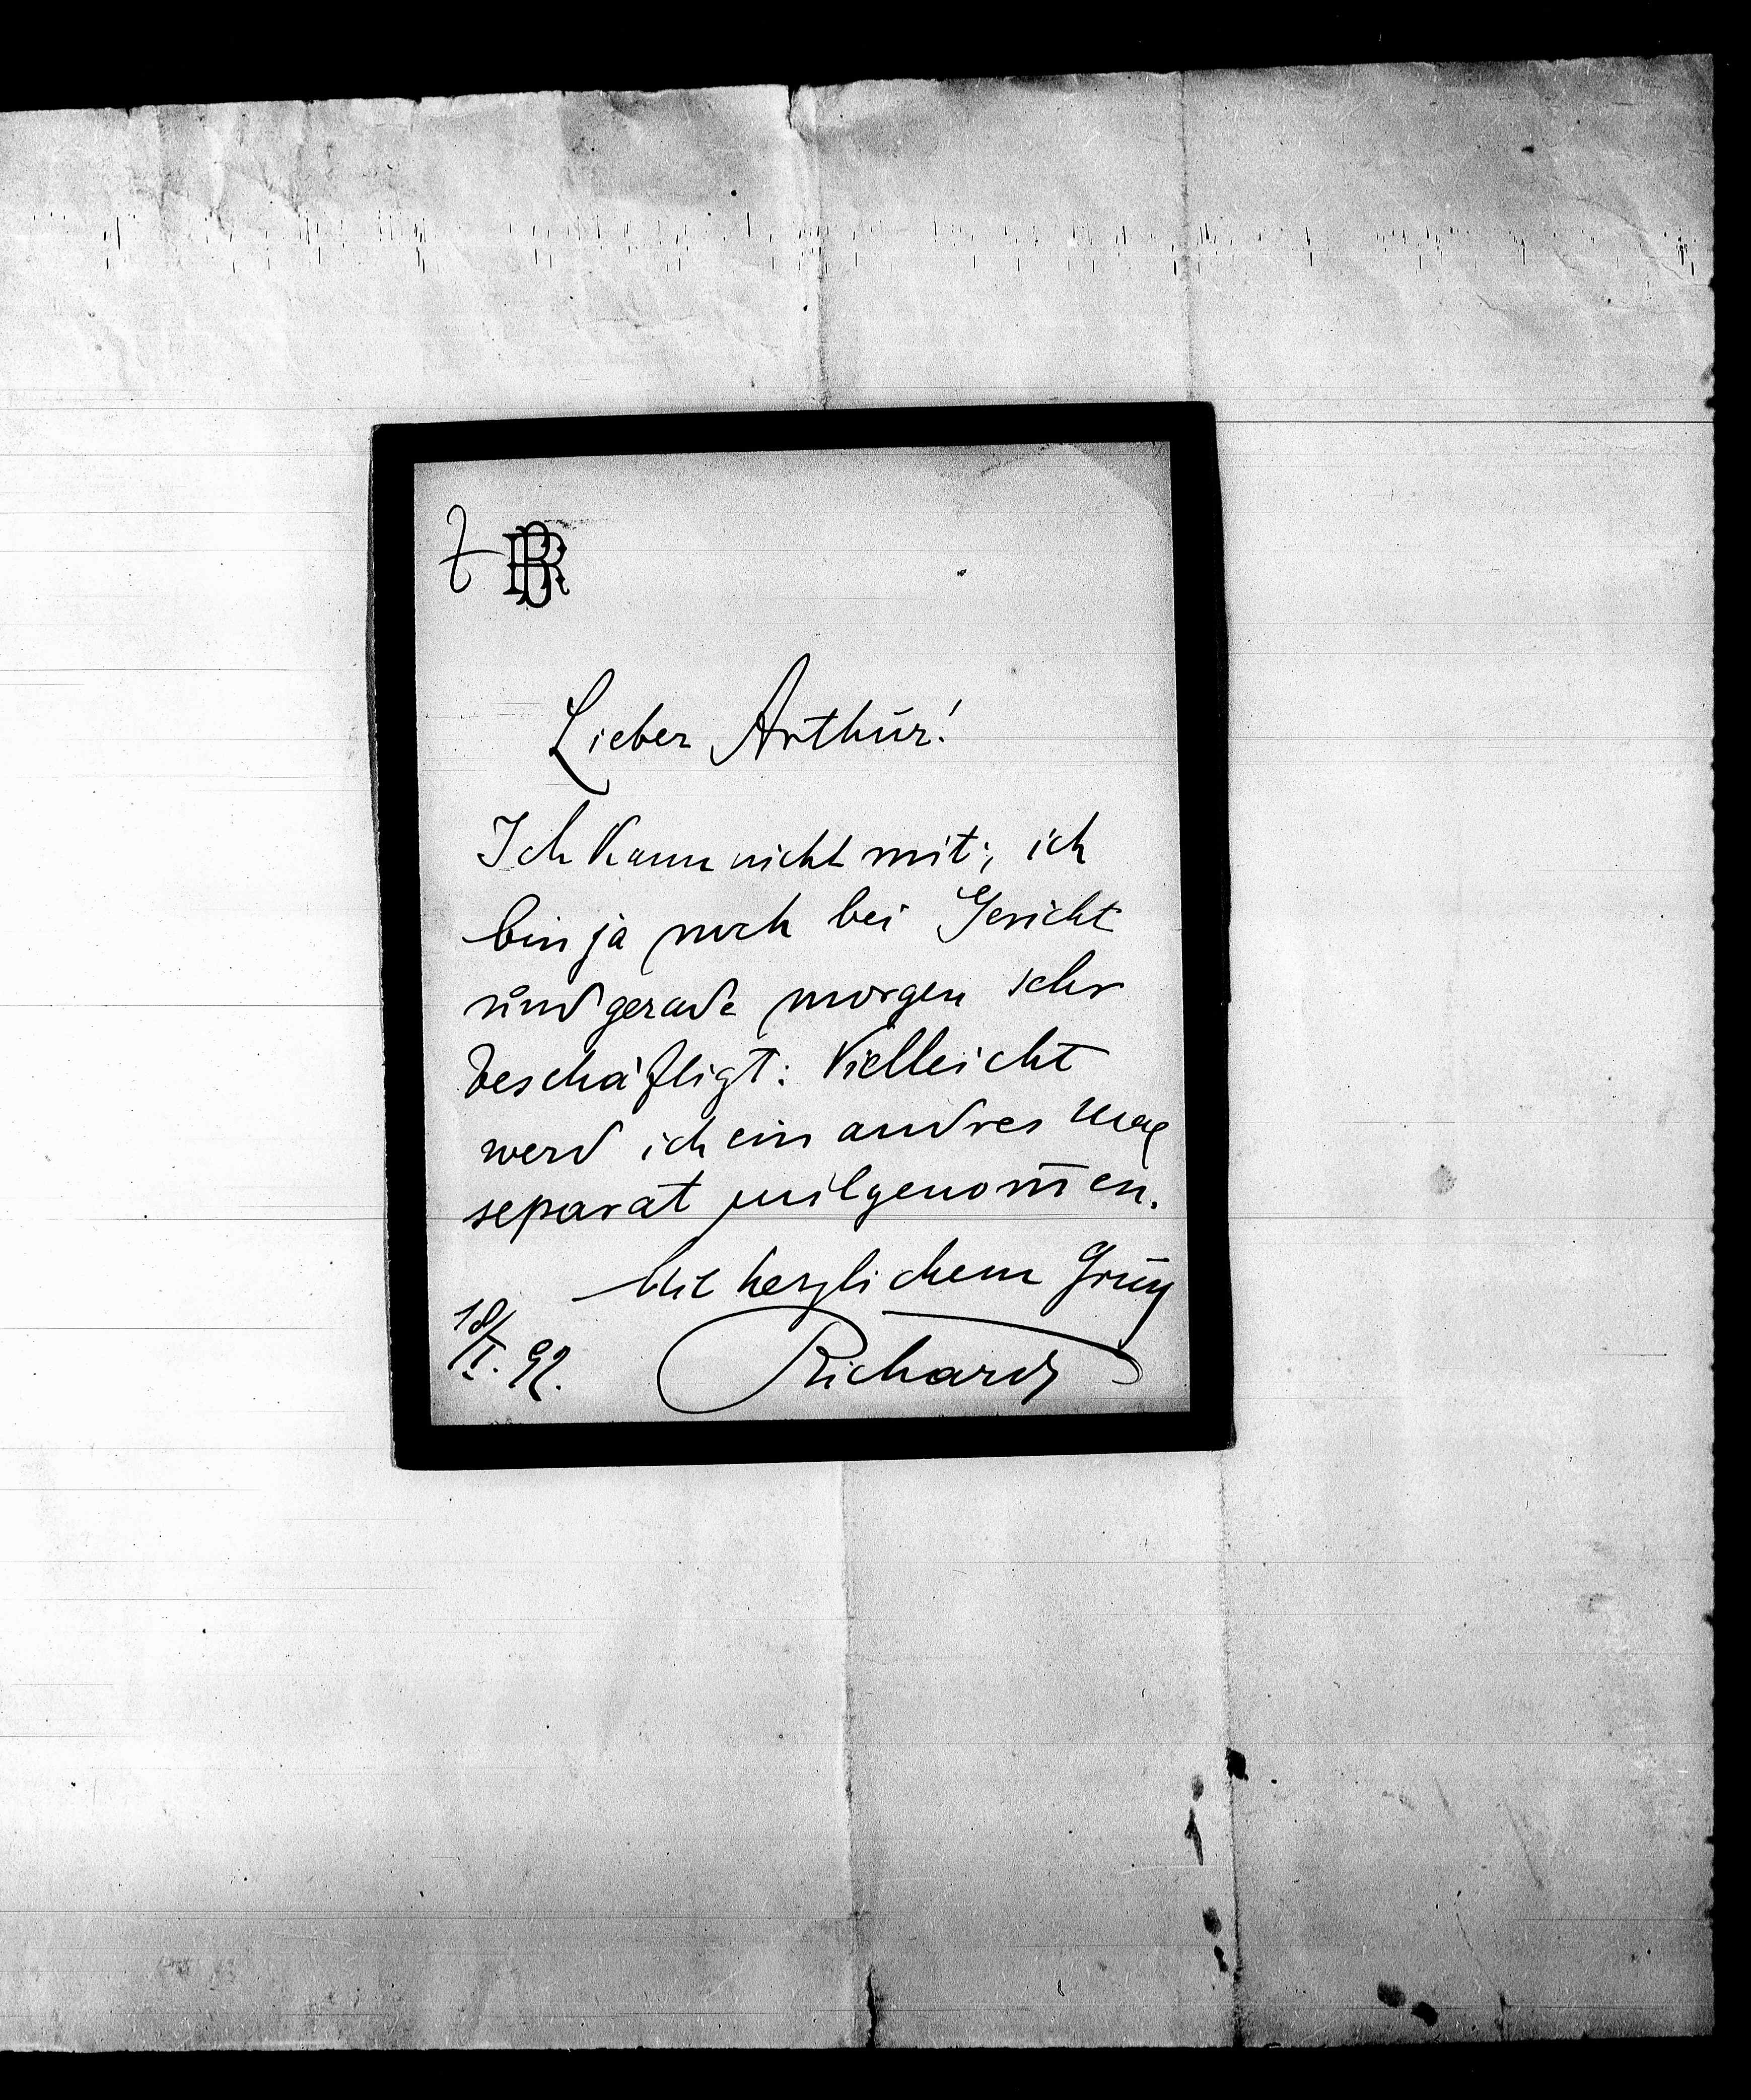 7 BR
Lieber Arthur!
Ich kann nicht mit; ich
bin ja noch bei Gericht
und gerade morgen sehr
beschäftigt: Vielleicht
werd ich ein andres Mal
separat mitgenom̅en.
Mit herzlichem Gruß
18/I. 92.
Richard